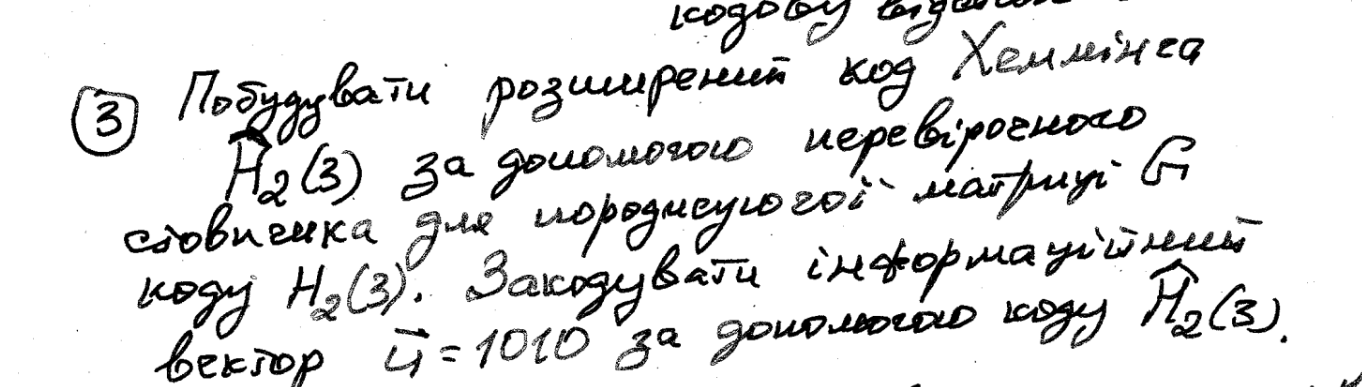 кодову
③ Побудувати розширений код Хеммінга
Ĥ₂(3) за допомогою перевірочного
стовпчика для породжуючої матриці G
коду H₂(3). Закодувати інформаційний
вектор u⃗ = 1010 за допомогою коду Ĥ₂(3).